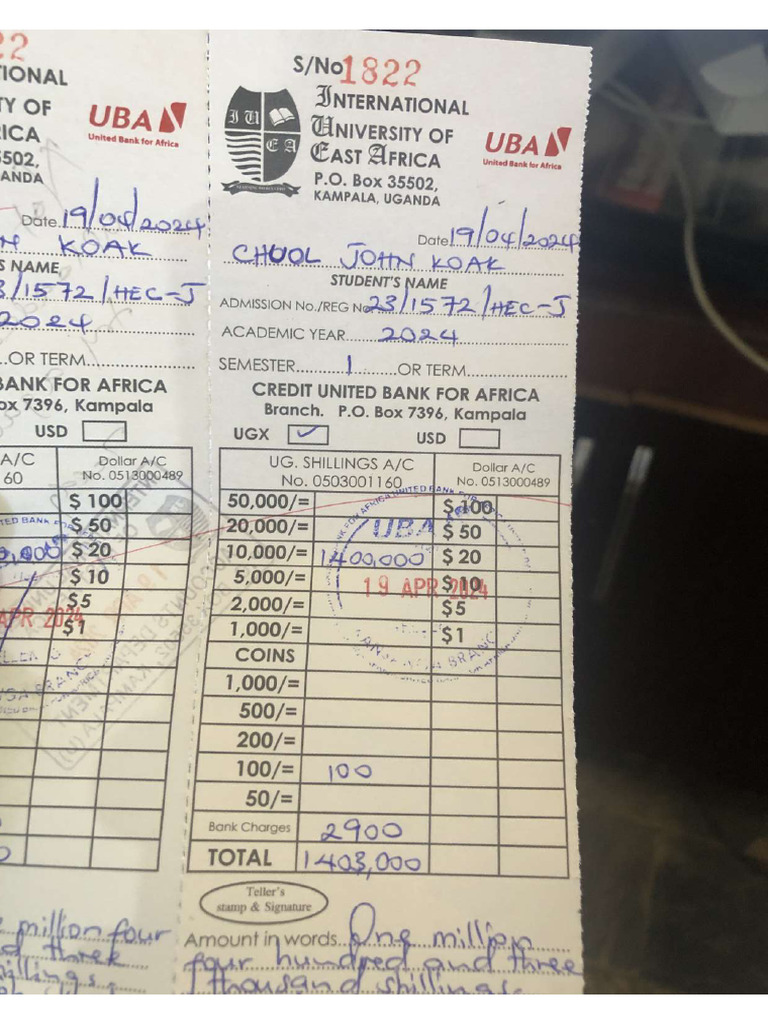 22
TIONAL
TY OF
RICA
5502,
ANDA
UBA
United Bank for Africa
Date 19/04/2024
N KOAK
S NAME
3/1572/HEC-J
2024
OR TERM
BANK FOR AFRICA
ox 7396, Kampala
USD
A/C
60
Dollar A/C
No. 0513000489
$ 100
$ 50
$ 20
$ 10
$5
$1
APR 2024
million four
d three
hillings
S/No 1822
IUEA
INTERNATIONAL
UNIVERSITY OF
EAST AFRICA
P.O. Box 35502,
KAMPALA, UGANDA
UBA
United Bank for Africa
Date 19/04/2024
CHUOL JOHN KOAK
STUDENT'S NAME
ADMISSION No./REG No 23/1572/HEC-J
ACADEMIC YEAR 2024
SEMESTER 1 OR TERM
CREDIT UNITED BANK FOR AFRICA
Branch. P.O. Box 7396, Kampala
UGX ✓ USD
UG. SHILLINGS A/C Dollar A/C
No. 0503001160 No. 0513000489
50,000/= $ 100
20,000/= $ 50
10,000/= 1400,000 $ 20
5,000/= $ 10
2,000/= $5
1,000/= $1
UBA
19 APR 2024
COINS
1,000/=
500/=
200/=
100/= 100
50/=
Bank Charges 2900
TOTAL 1403,000
Teller's
stamp & Signature
Amount in words One million
four hundred and three
thousand shillings